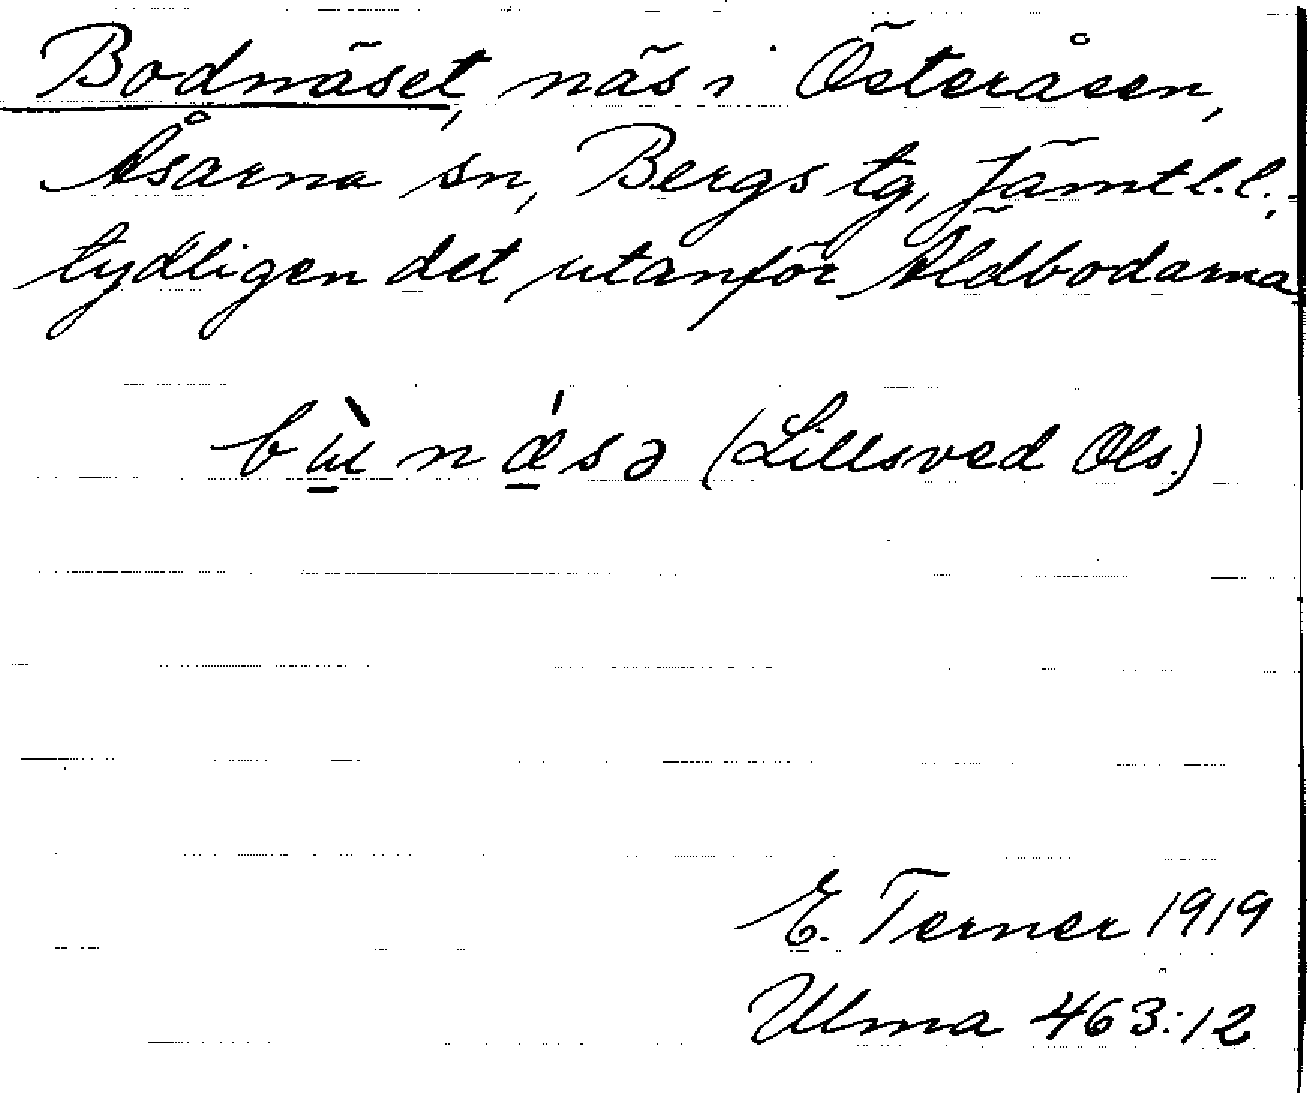 Bodnäset, näs i Österåsen,
Åsarna sn, Bergs tg, Jämtl.l.,
tydligen det utanför Äldbodarna
bɯ̱̀ nǽ̱sə (Lillsved Ols.)
E. Terner 1919
Ulma 463:12